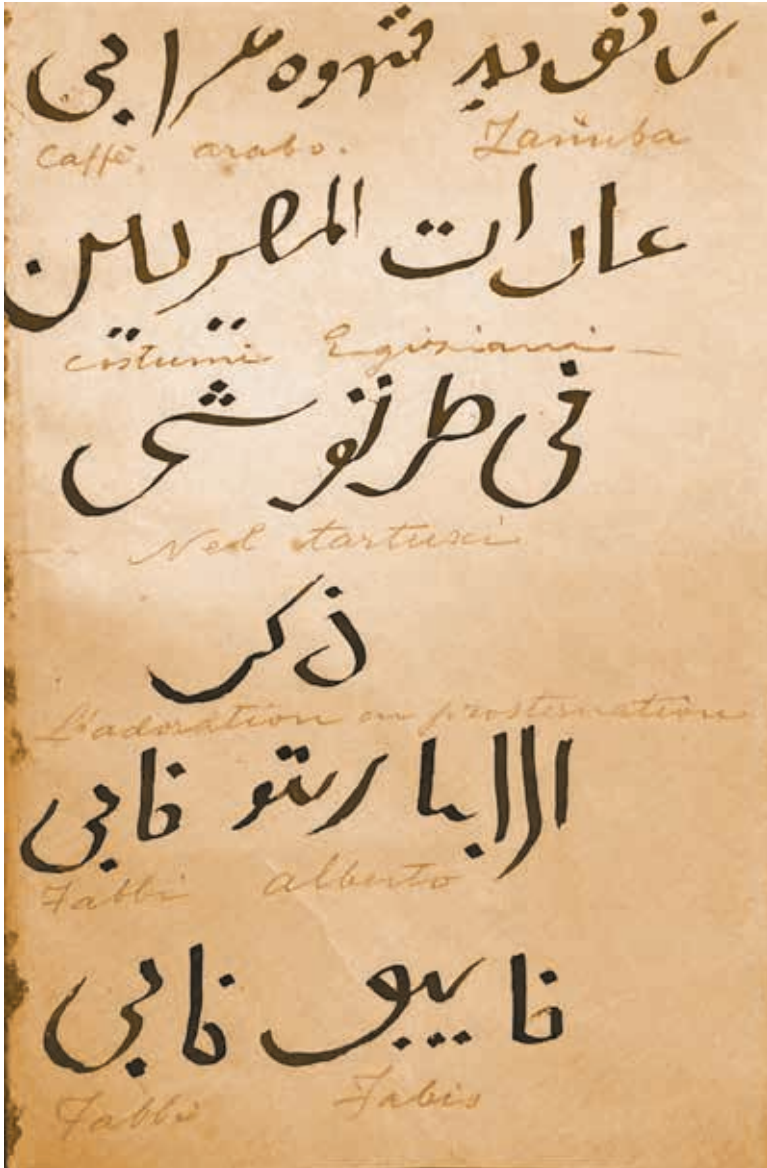 قهوه عرابي
Caffè arabo. Zanùba
عادات المصريين
costumi Egiziani
في طرتوشي
Nel
ذكر
L'adoration ou prosternation
الابا ريتو فابي
Fabbi alberto
فابيو فابي
Fabbi Fabio